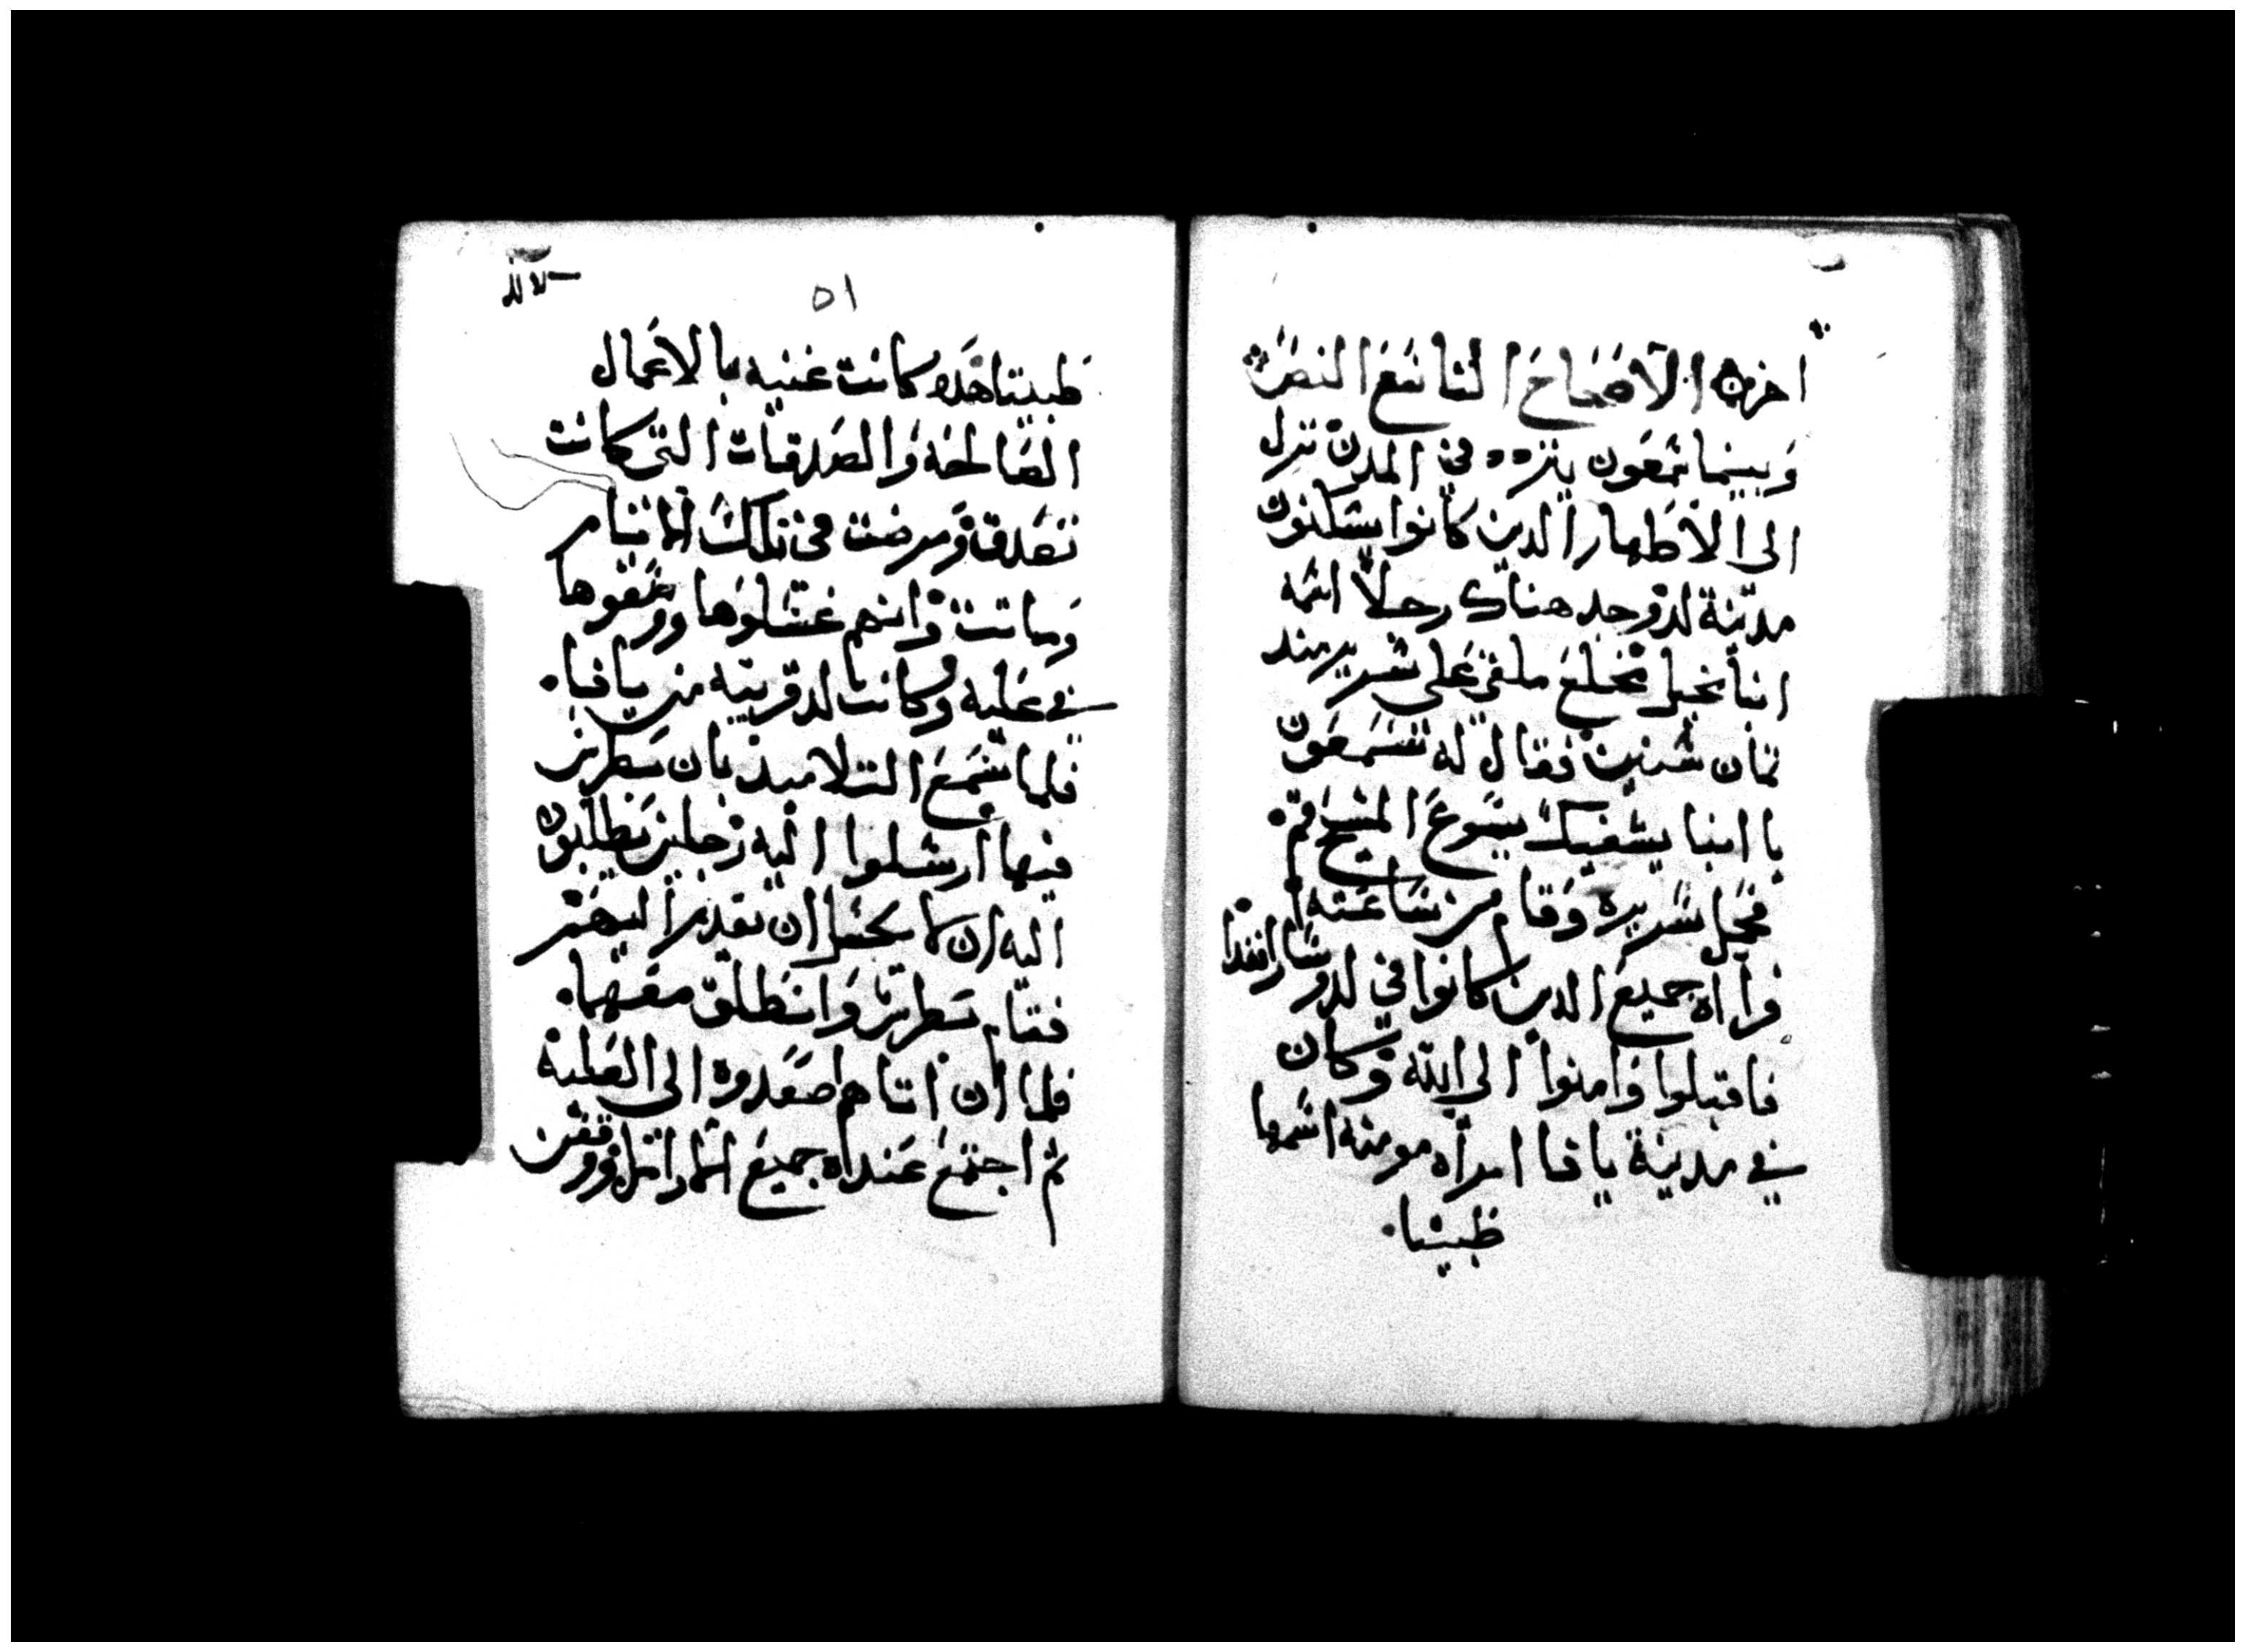 اخره الاصحاح التاسع النص
وبينما شمعون ينزه في المدن نزل
الى الاطهار الدين كانوا يسكنون
مدينة لد وجد هناك رجلاً اسمه
انيا مخلع ملقى على سرير مند
ثمان سنين فقال له شمعون
يا انيا يشفيك يسوع المسيح قم
فحمل سريره وقام من ساعته
فرااه جميع الدين كانوا في لد وسارانفدا
فاقبلوا وامنوا الى الله وكان
في مدينة يافا امراه مومنه اسمها
طبيتا
٥١
طبيتا هده كانت غنيه بالاعمال
الصالحه والصدقات التي كانت
تصدق ومرضت في تلك الايام
وماتت وانهم غسلوها ووضعوها
في عليه وكانت لد قريبه من يافا
فلما سمع التلاميد بان بطرس
فيها ارسلوا اليه رجلين يطلبون
اليه ان لا يكسل ان يقدم اليهم
فقام بطرس وانطلق معهما
فلما ان اتاهم اصعدوه الى العلية
ثم اجتمع عنداه جميع الارامل ووقفن